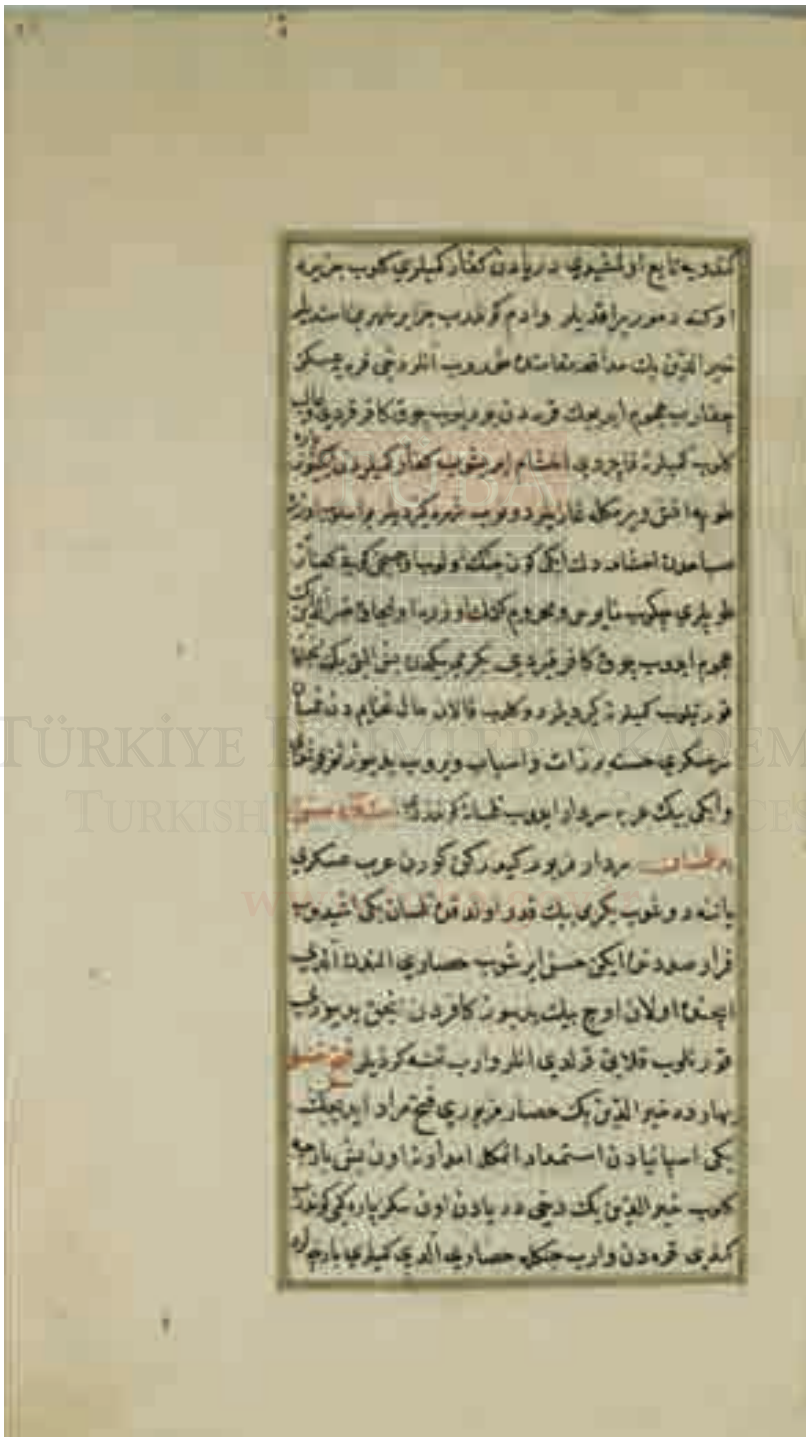 كندويه تابع اولمشيدى دريادن كفار كميلرى كلوب جزيره
اوكنه دمور براقديلر وادم كوندرب جزاير شهرين استديلر
خير الدين بك مدافعه مقامنده طوروب آنلر دخى قره يه عسكر
چقارب هجوم ايديجك قره دن يوريوب چوق كافر قردى غالب
كلوب كميلره قاچردى اخشام ايريشوب كفار كميلردن يكيوز پاره
طوپه اتش ويرمكله غازيلر دونوب شهره كرديلر بو اسلوب اوزره
صباحدن اخشامه دك ايكى كون جنك اولوب اوچنجى كون كفار
طوپلرى چكوب مايوس ومحروم كتمك اوزره اوليجق خير الدين بك
هجوم ايدوب چوق كافر قردى يكرمى بيكدن بش التى بيك آنجق
قورتيلوب كميلره كرديلر دوكلوب قالان مال غنايمدن تلمسان
سرعسكرى حسنه برزات واسباب ويروب يديوز تفنك انداز
وايكى بيك عرب سردار ايدوب تلمسانه كوندردى
در تلمسان سردار مزبور كيدركن كورن عرب عسكرى
ياننه دوشوب يكرمى بيك قدر اولدقده تلمسان بكى اشيدوب
فرار صددنده ايكن حسن ايرشوب حصارى النده الدى
ايچنده اولان اوچ بيك يديوز كافردن آنجق يديوزى
قورتلوب قلانى قرلدى انلر وارب تنسه كرديلر
بهارده خير الدين بك حصار مزبورى فتح مراد ايديجك
بكى اسپانيادن استمداد اتمكله امدادنه اون بش بارچه
كلوب خير الدين بك دخى دريادن اون سكز پاره كمى كوندرب
كندى قره دن وارب جنكله حصارى الدى كميلرى بارچه لره
TÜRKİYE BİLİMLER AKADEM
TURKISH
CES
w